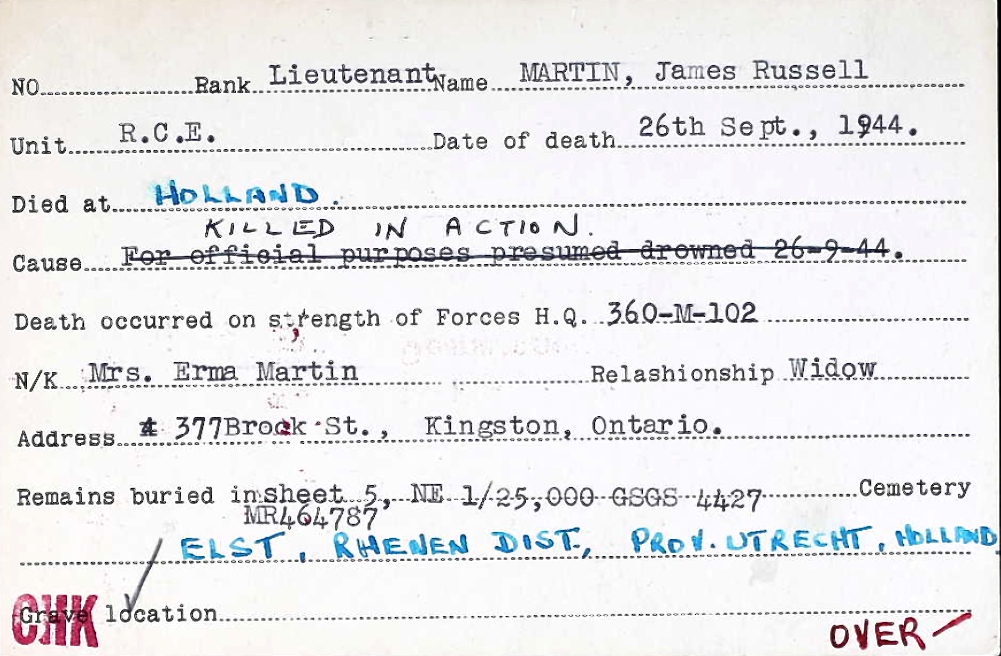 NO. Rank Lieutenant Name MARTIN, James Russell
Unit R.C.E. Date of death 26th Sept., 1944.
Died at HOLLAND.
KILLED IN ACTION.
Cause For official purposes presumed drowned 26-9-44.
Death occurred on strength of Forces H.Q. 360-M-102
N/K Mrs. Erma Martin Relashionship Widow
Address # 377Brock St., Kingston, Ontario.
Remains buried in sheet 5, NE 1/25,000 GSGS 4427 Cemetery
MR464787
ELST, RHENEN DIST., PROV. UTRECHT, HOLLAND
Grave location
CHK
OVER